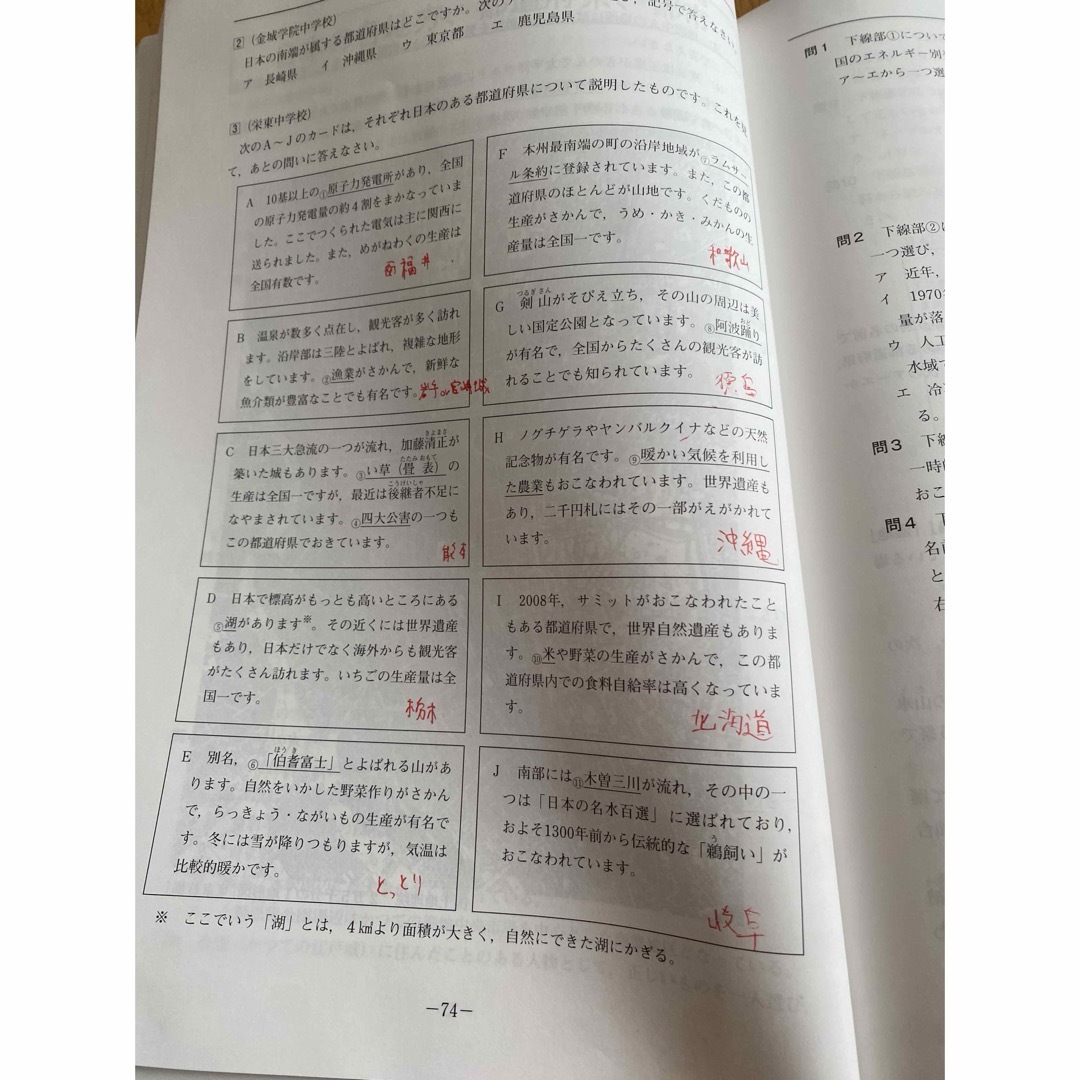 2 (金城学院中学校)
日本の南端が属する都道府県はどこですか。次の
記号で答えなさい。
ア 長崎県 イ 沖縄県 ウ 東京都 エ 鹿児島県
3 (栄東中学校)
次のA～Jのカードは,それぞれ日本のある都道府県について説明したものです。これを
て,あとの問いに答えなさい。
A 10基以上の①原子力発電所があり,全国
の原子力発電量の約4割をまかなっていま
した。ここでつくられた電気は主に関西に
送られました。また,めがねわくの生産は
全国有数です。
福井
B 温泉が数多く点在し,観光客が多く訪れ
ます。沿岸部は三陸とよばれ,複雑な地形
をしています。②漁業がさかんで,新鮮な
魚介類が豊富なことでも有名です。
岩手or宮城
きよまさ
C 日本三大急流の一つが流れ,加藤清正が
たたみおもて
築いた城もあります。③い草(畳表)の
こうけいしゃ
生産は全国一ですが,最近は後継者不足に
なやまされています。④四大公害の一つも
この都道府県でおきています。
D 日本で標高がもっとも高いところにある
⑤湖があります※。その近くには世界遺産
もあり,日本だけでなく海外からも観光客
がたくさん訪れます。いちごの生産量は全
国一です。
栃木
ほうき
E 別名,⑥「伯耆富士」とよばれる山があ
ります。自然をいかした野菜作りがさかん
で,らっきょう・ながいもの生産が有名で
す。冬には雪が降りつもりますが,気温は
比較的暖かです。
とっとり
F 本州最南端の町の沿岸地域が⑦ラムサー
ル条約に登録されています。また,この都
道府県のほとんどが山地です。くだものの
生産がさかんで,うめ・かき・みかんの生
産量は全国一です。
和歌山
つるぎさん
G 剣山がそびえ立ち,その山の周辺は美
しい国定公園となっています。⑧阿波踊り
おど
が有名で,全国からたくさんの観光客が訪
れることでも知られています。
徳島
H ノグチゲラやヤンバルクイナなどの天然
記念物が有名です。⑨暖かい気候を利用し
た農業もおこなわれています。世界遺産も
あり,二千円札にはその一部がえがかれて
います。
沖縄
I 2008年,サミットがおこなわれたこと
もある都道府県で,世界自然遺産もありま
す。⑩米や野菜の生産がさかんで,この都
道府県内での食料自給率は高くなっていま
す。
北海道
J 南部には⑪木曽三川が流れ,その中の一
つは「日本の名水百選」に選ばれており,
う
およそ1300年前から伝統的な「鵜飼い」が
おこなわれています。
岐阜
※ ここでいう「湖」とは,4km²より面積が大きく,自然にできた湖にかぎる。
－74－
問1 下線部①につい
国のエネルギー別
ア～エから一つ選
問2 下線部②に
一つ選び,
ア 近年,
イ 1970
量が落
ウ 人工
水域で
エ 冷
る。
問3 下
一時
おこ
問4 下
名前
と
右